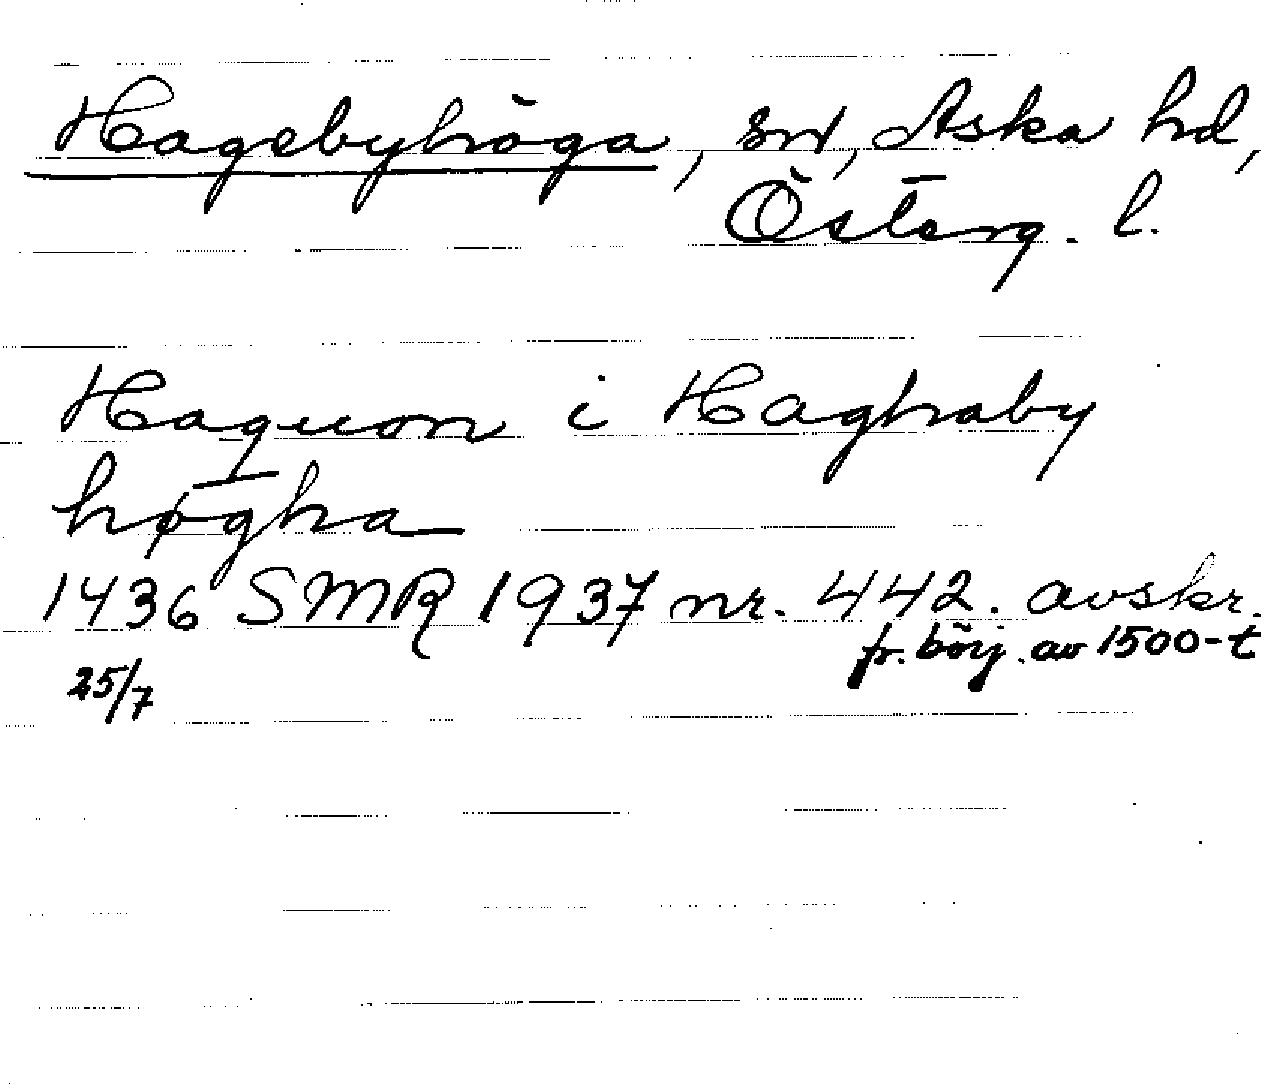 Hagebyhöga, sn, Aska hd,
Österg. l.
Haquon i Haghaby
høgha
1436 SMR 1937 nr. 442. avskr.
fr. börj. av 1500-t
25/7